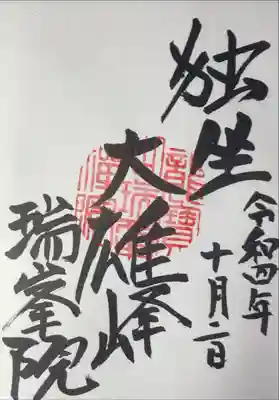 独坐
大雄峰
令和四年
十月二日
瑞峯院